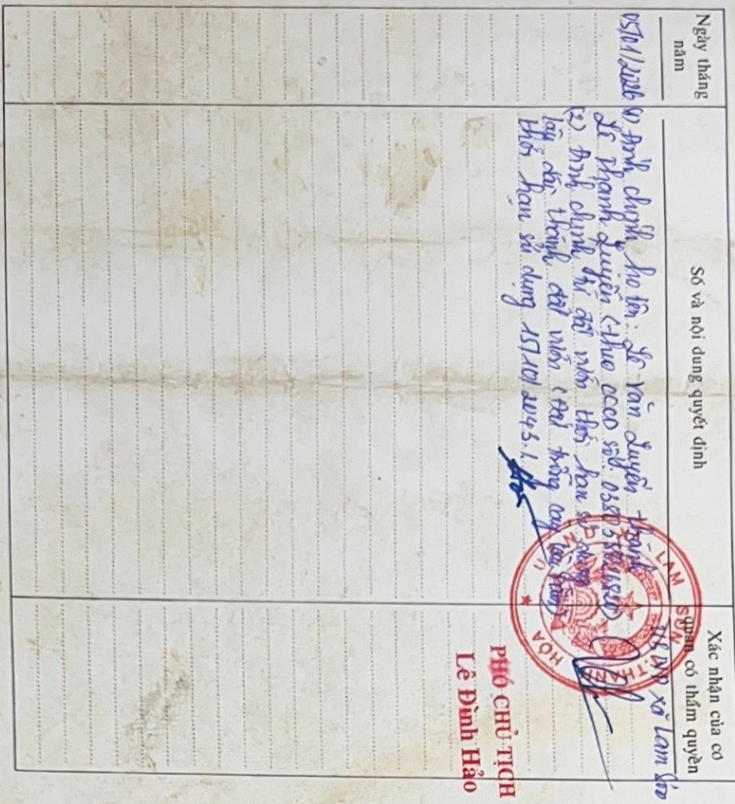 Ngày tháng năm
Số và nội dung quyết định
Xác nhận của cơ quan có thẩm quyền
05/01/2026
(1) Đính chính họ tên: Lê Văn Luyến thành
Lê Thanh Luyến (theo CCCD số:
(2) Đính chính thời hạn sử dụng
lâu dài thành đất vườn (đất trồng cây lâu năm)
thời hạn sử dụng 15/10/2043./.
UBND xã Lam Sơn
LAM SƠN
U.B.N.D
T. THANH HÓA
PHÓ CHỦ TỊCH
Lê Đình Hảo